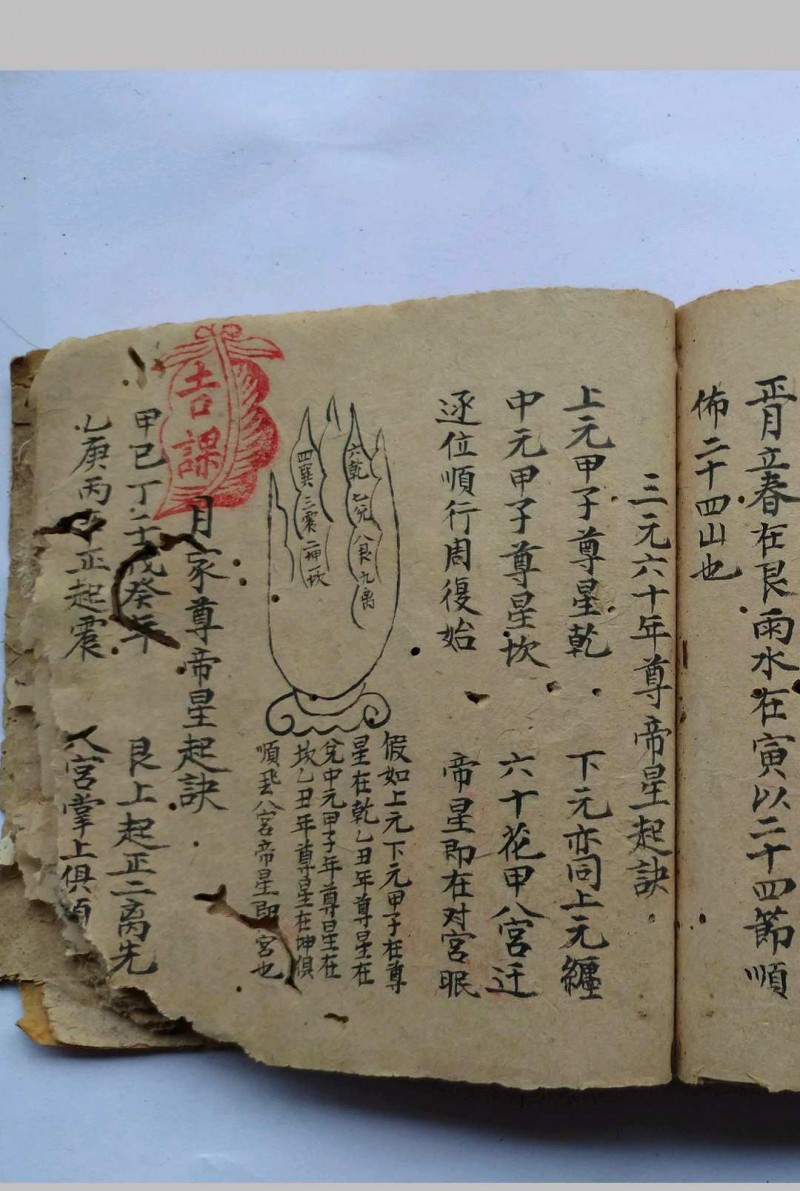 正月立春在艮雨水在寅以二十四節順
佈二十四山也
三元六十年尊帝星起訣
上元甲子尊星乾 下元亦同上元纏
中元甲子尊星坎 六十花甲八宮迁
逐位順行周復始 帝星即在对宮眠
六乾 七兌 八艮 九离
四巽 三震 二坤 一坎
假如上元下元甲子在尊
星在乾乙丑年尊星在
兌中元甲子年尊星在
坎乙丑年尊星在坤俱
順飛八宮帝星即 宮也
吉課
月家尊帝星起訣
甲己丁壬戊癸年 艮上起正二离先
乙庚丙 正起震 八宮掌上俱